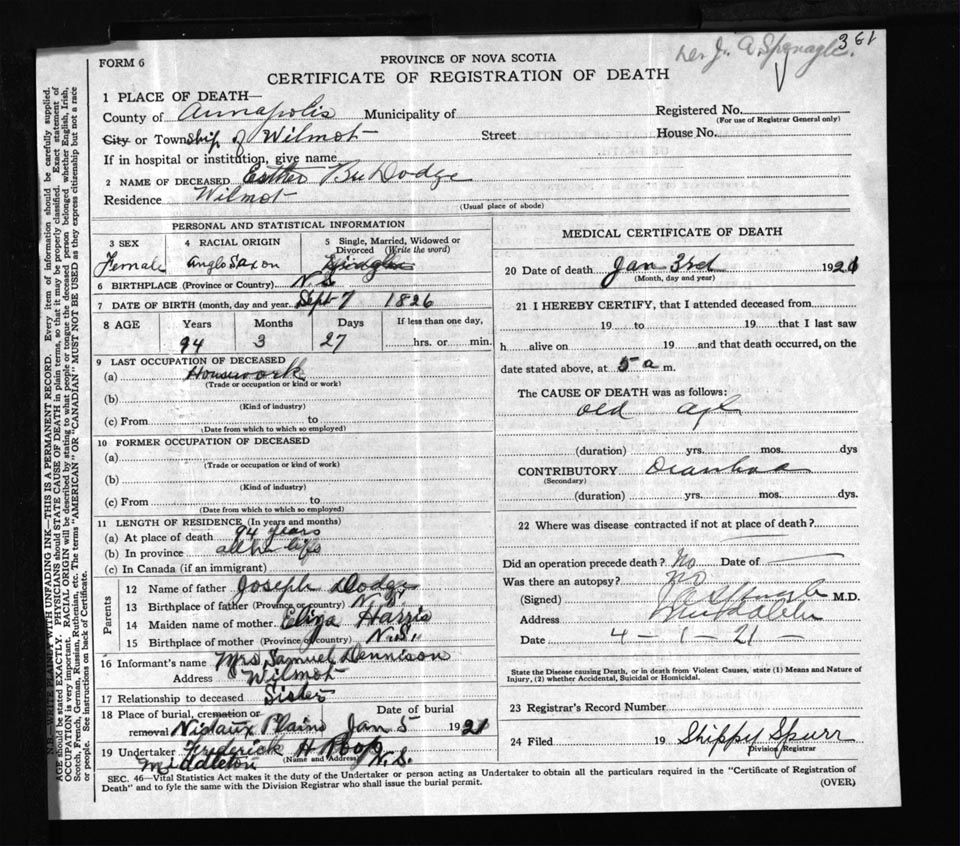 Dr J. A. Sponagle. 361
FORM 6
PROVINCE OF NOVA SCOTIA
CERTIFICATE OF REGISTRATION OF DEATH
1 PLACE OF DEATH—
County of Annapolis Municipality of
Registered No.
(For use of Registrar General only)
City or Township of Wilmot Street House No.
If in hospital or institution, give name
2 NAME OF DECEASED Esther Dodge
Residence Wilmot
(Usual place of abode)
PERSONAL AND STATISTICAL INFORMATION
3 SEX 4 RACIAL ORIGIN 5 Single, Married, Widowed or Divorced (Write the word)
Female Anglo Saxon Single
6 BIRTHPLACE (Province or Country) N.S
7 DATE OF BIRTH (month, day and year) Sept 7 1826
8 AGE Years Months Days If less than one day,
94 3 27 hrs. or min.
9 LAST OCCUPATION OF DECEASED
(a) Housework
(Trade or occupation or kind or work)
(b)
(Kind of industry)
(c) From to
(Date from which to which so employed)
10 FORMER OCCUPATION OF DECEASED
(a)
(Trade or occupation or kind of work)
(b)
(Kind of industry)
(c) From to
(Date from which to which so employed)
11 LENGTH OF RESIDENCE (In years and months)
(a) At place of death 94 years
(b) In province all her life
(c) In Canada (if an immigrant)
Parents
12 Name of father Joseph Dodge
13 Birthplace of father (Province or country) N.S.
14 Maiden name of mother Eliza Harris
15 Birthplace of mother (Province of country) N.S.
16 Informant's name Mrs Samuel Dennison
Address Wilmot
17 Relationship to deceased Sister
18 Place of burial, cremation or removal Date of burial
Nictaux Plains Jan 5 1921
19 Undertaker Frederick H Roop
(Name and Address)
Middleton N.S.
MEDICAL CERTIFICATE OF DEATH
20 Date of death Jan 3rd 1921
(Month, day and year)
21 I HEREBY CERTIFY, that I attended deceased from
19 to 19 that I last saw
h alive on 19 and that death occurred, on the
date stated above, at 5 a m.
The CAUSE OF DEATH was as follows:
old age
(duration) yrs. mos. dys
CONTRIBUTORY Diarrhoea
(Secondary)
(duration) yrs. mos. dys.
22 Where was disease contracted if not at place of death?
Did an operation precede death? No Date of
Was there an autopsy? No
(Signed) J A Sponagle M.D.
Address Middleton
Date 4-1-21-
State the Disease causing Death, or in death from Violent Causes, state (1) Means and Nature of
Injury, (2) whether Accidental, Suicidal or Homicidal.
23 Registrar's Record Number
24 Filed 19 Shippy Spurr
Division Registrar
SEC. 46—Vital Statistics Act makes it the duty of the Undertaker or person acting as Undertaker to obtain all the particulars required in the "Certificate of Registration of
Death" and to fyle the same with the Division Registrar who shall issue the burial permit. (OVER)
N.B.—WRITE PLAINLY WITH UNFADING INK—THIS IS A PERMANENT RECORD. Every item of information should be carefully supplied.
AGE should be stated EXACTLY. PHYSICIANS should STATE CAUSE OF DEATH in plain terms, so that it may be properly classified. Exact statement of
OCCUPATION is very important. RACIAL ORIGIN will be described by stating to what people or tongue the deceased person belonged whether English, Irish,
Scotch, French, German, Russian, Ruthenian, etc. The terms "AMERICAN" OR "CANADIAN" MUST NOT BE USED as they express citizenship but not a race
or people. See instructions on back of Certificate.